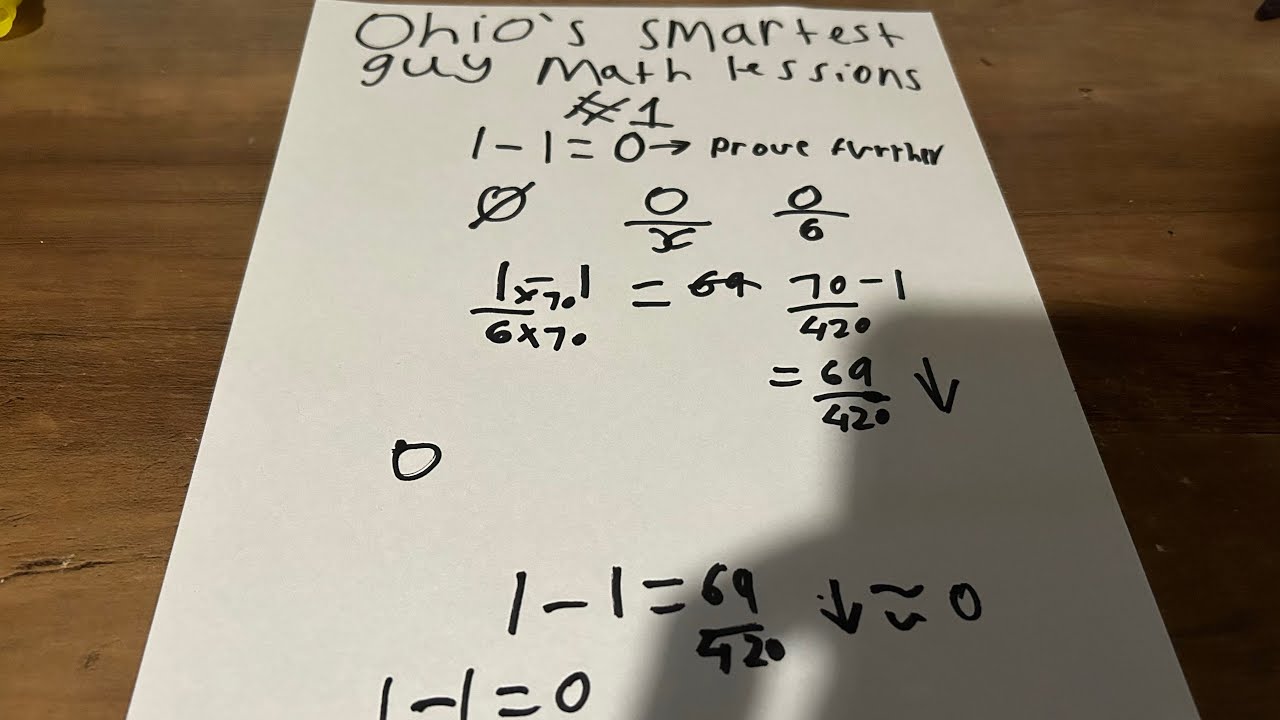 Ohio's smartest
guy Math lessions
#1
1 - 1 = 0 → prove further
∅ 0/x 0/6
1×70 - 1 / 6×70 = 69 70 - 1 / 420
= 69/420 ↓
0
1 - 1 = 69/420 ↓ ≈ 0
1 - 1 = 0